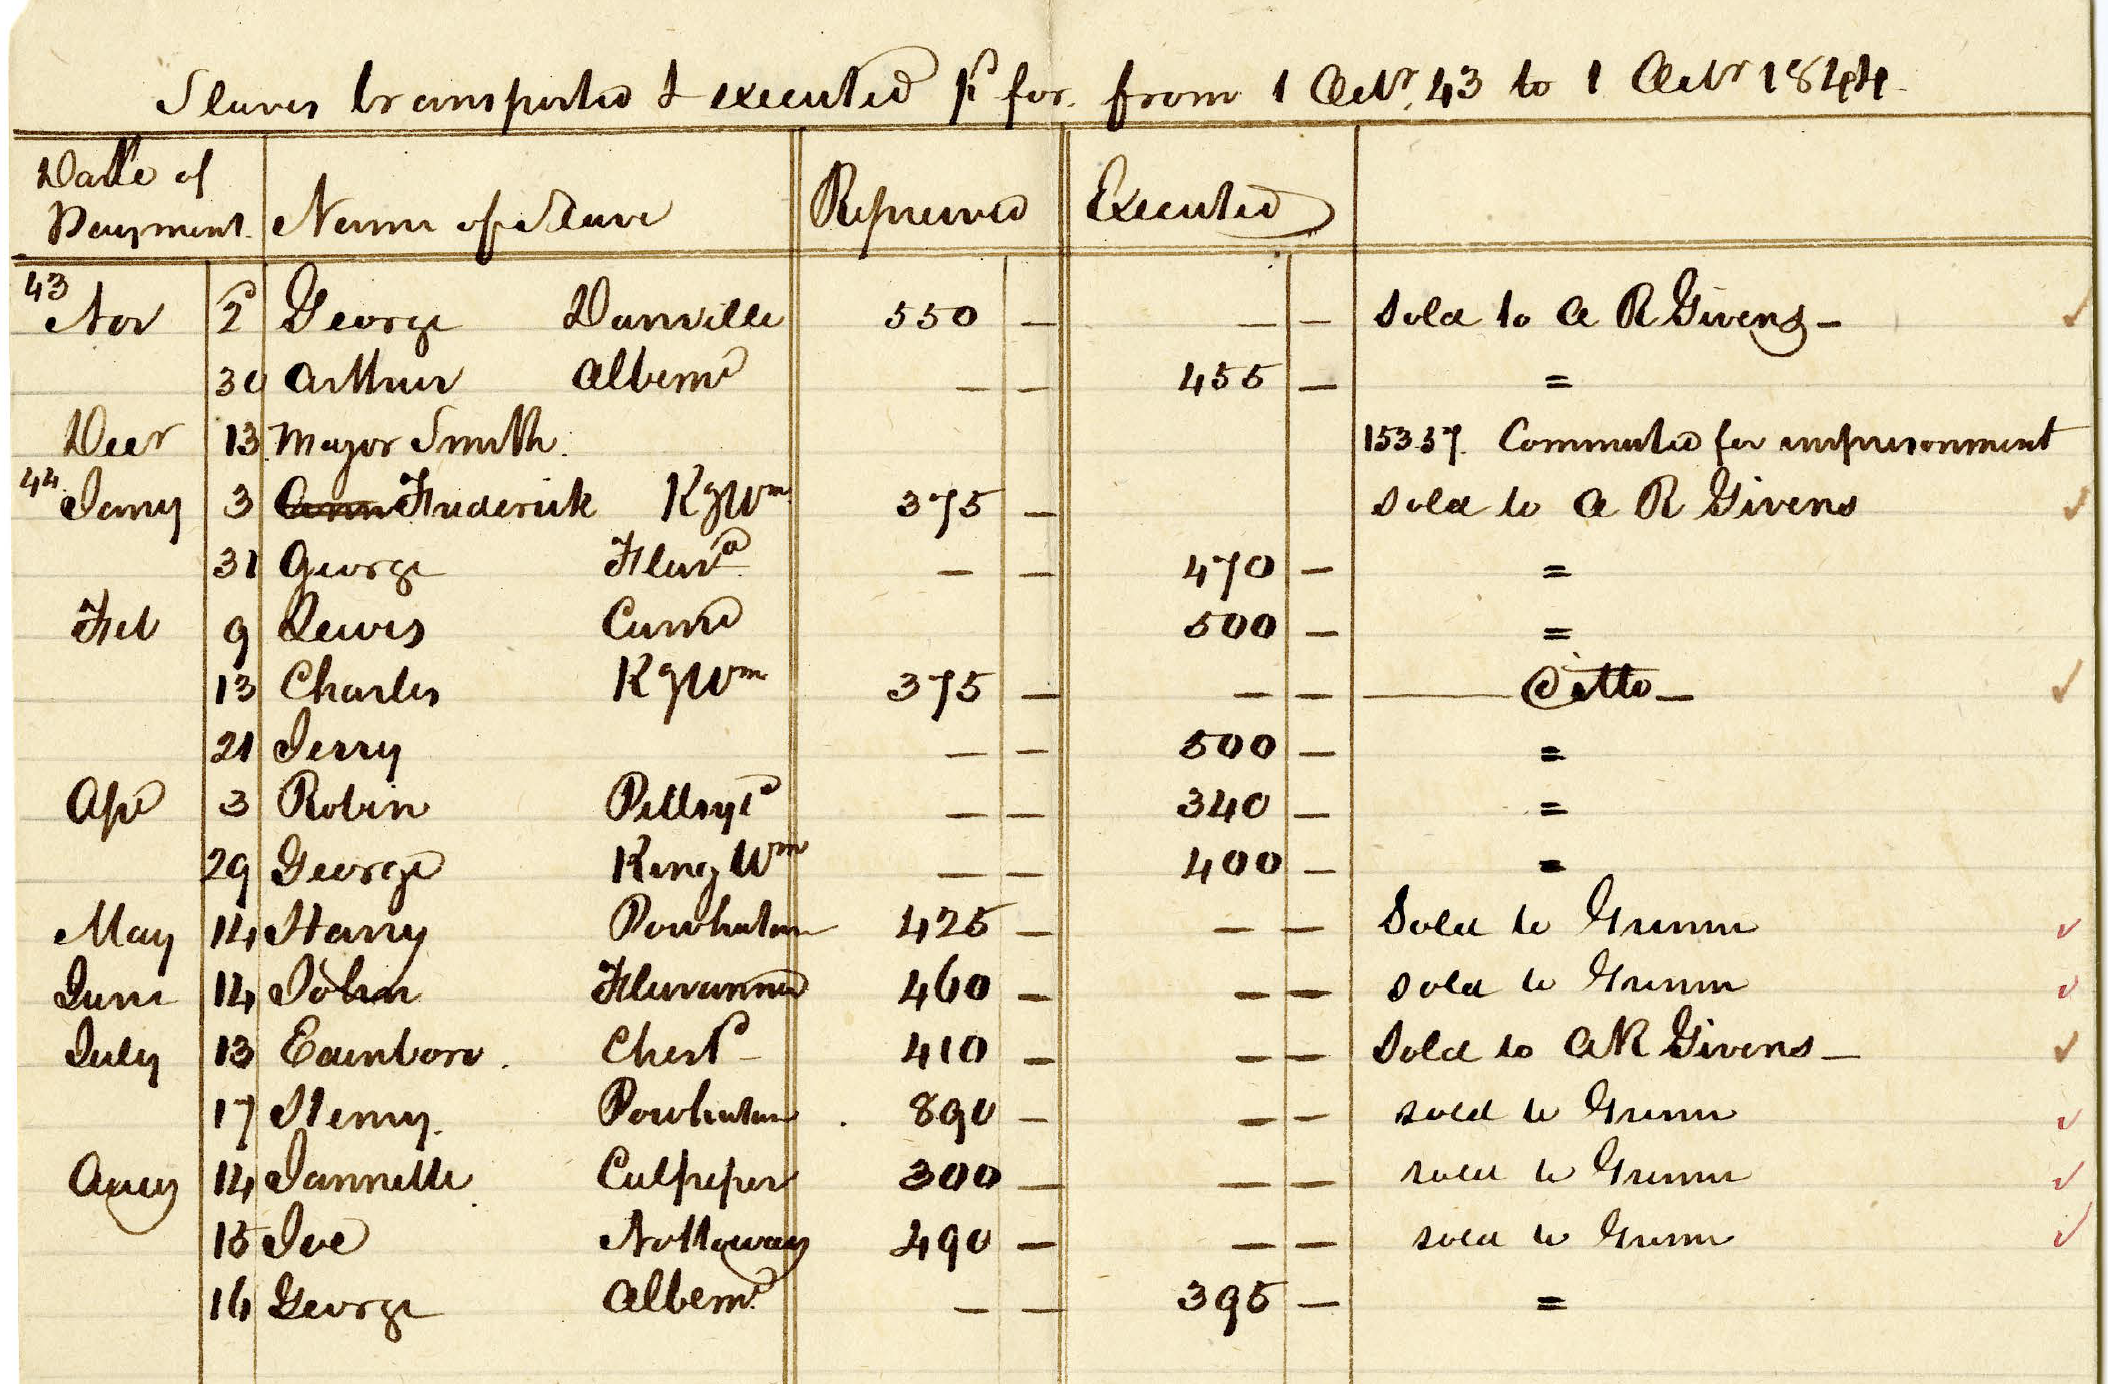 Slaves transported & executed pd for from 1 Octr. 43 to 1 Octr 1844
Date of Payment. Name of Slave Reprieved Executed
43 Nov 2 George Danville 550 — — — Sold to A R Givens —
30 Arthur Albeme — — 455 — =
Decr 13 Major Smith. 153.37. Commuted for imprisonment
44 Jany 3 Ann Frederick Kg Wm 375 — Sold to A R Givens
31 George Fluva — — 470 — =
Feb 9 Lewis 500 — =
13 Charles Kg Wm 375 — — — Ditto —
21 Jerry — — 500 — =
Apl 3 Robin — — 340 — =
29 George King Wm — — 400 — =
May 14 Harry Powhatan 425 — — — Sold to Grimm
June 14 John Fluvanna 460 — — — Sold to Grimm
July 13 Edinboro. Chesfd 410 — — — Sold to A R Givens —
17 Henry. Powhatan 890 — — — sold to Grimm
Aug 14 Jannette Culpeper 300 — — — sold to Grimm
15 Joe Nottoway 490 — — — sold to Grimm
16 George Albeme — — 395 — =